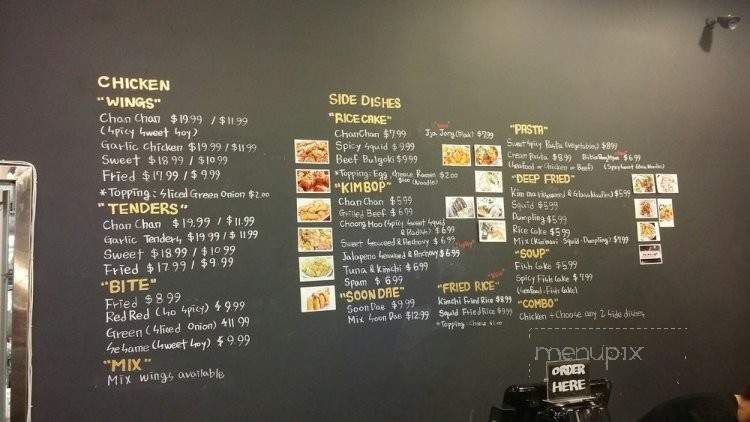 CHICKEN
"WINGS"
Chan Chan $19.99 / $11.99
(Spicy Sweet Soy)
Garlic Chicken $19.99 / $11.99
Sweet $18.99 / $10.99
Fried $17.99 / $9.99
*Topping: Sliced Green Onion $2.00
"TENDERS"
Chan Chan $19.99 / $11.99
Garlic Tenders $19.99 / $11.99
Sweet $18.99 / $10.99
Fried $17.99 / $9.99
"BITE"
Fried $8.99
Red Red (So Spicy) $9.99
Green (Sliced Onion) $11.99
Sesame (Sweet Soy) $9.99
"MIX"
Mix wings available
SIDE DISHES
"RICE CAKE"
Chan Chan $7.99
Jja Jang (Black) $7.99
Spicy Squid $9.99
Beef Bulgoki $9.99
*Topping: Egg, cheese, Ramen $2.00
(Noodle)
"KIMBOP"
Chan Chan $5.99
Grilled Beef $6.99
Choong Moo (Spicy Sweet Squid
& Radish) $6.99
Sweet Seaweed & Anchovy $6.99
Jalapeno Seaweed & Anchovy $6.99
Tuna & Kimchi $6.99
Spam $6.99
"SOONDAE"
Soon Dae $9.99
Mix Soon Dae $12.99
"FRIED RICE"
Kimchi Fried Rice $8.99
Squid Fried Rice $9.99
*Topping: Cheese
"PASTA"
Sweet Spicy Pasta (Vegetables) $8.99
Cream Pasta $8.99
$6.99
(Seafood or Chicken or Beef)
"DEEP FRIED"
Kimmari (Seaweed & Glass Noodles) $5.99
Squid $5.99
Dumpling $5.99
Rice Cake $5.99
Mix (Kimmari Squid Dumpling) $7.99
"SOUP"
Fish Cake $5.99
Spicy Fish Cake $7.99
(Seafood, Fish Cake)
"COMBO"
Chicken + Choose any 2 side dishes
menupix
ORDER
HERE